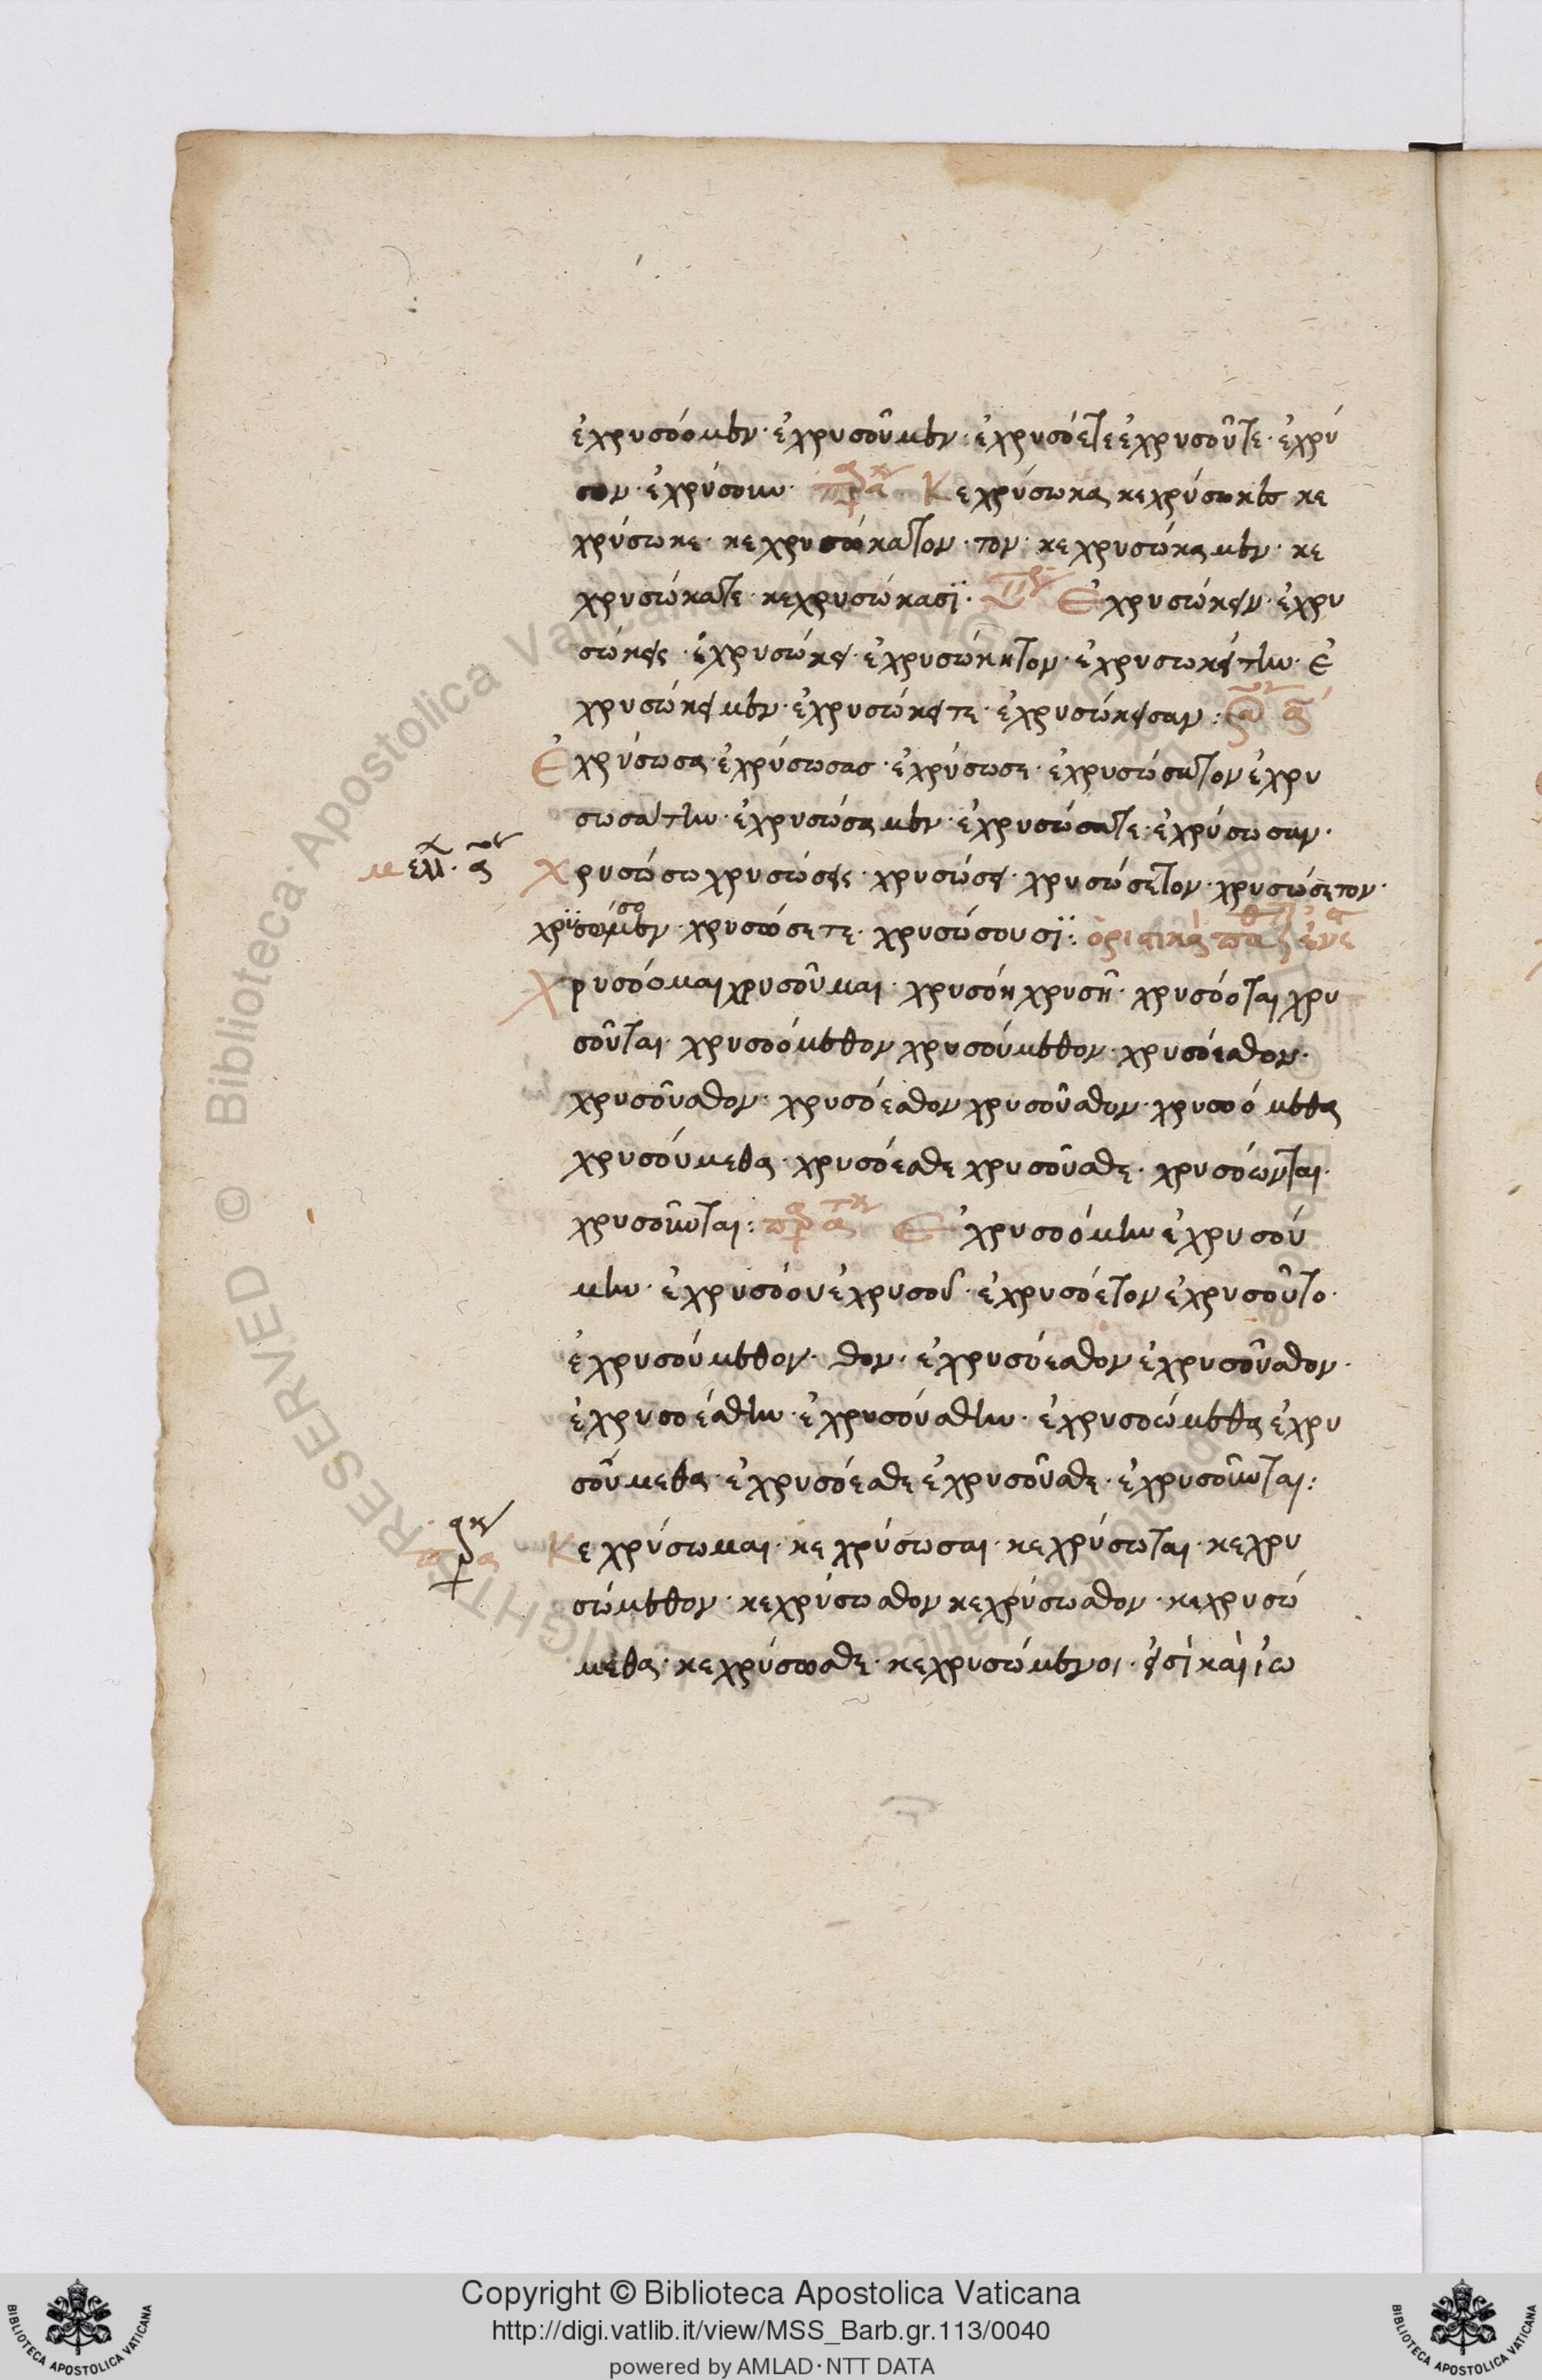 ἐχρυσόομεν· ἐχρυσοῦμεν· ἐχρυσόετε ἐχρυσοῦτε· ἐχρύ
σουν· ἐχρύσουν· Κεχρύσωκα κεχρύσωκας κε
χρύσωκε· κεχρυσώκατον· τον· κεχρυσώκαμεν· κε
χρυσώκατε· κεχρυσώκασϊ· Ἐχρυσώκειν· ἐχρυ
σώκεις· ἐχρυσώκει· ἐχρυσώκητον· ἐχρυσωκείτην· ἐ
χρυσώκειμεν· ἐχρυσώκειτε· ἐχρυσώκεισαν:
Ἐχρύσωσα· ἐχρύσωσας· ἐχρύσωσε· ἐχρυσώσατον ἐχρυ
σωσάτην· ἐχρυσώσαμεν· ἐχρυσώσατε· ἐχρύσωσαν·
μελλ· α
Χρυσώσω χρυσώσεις· χρυσώσει· χρυσώσετον· χρυσώσετον·
χρϋσώσομεν· χρυσώσετε· χρυσώσουσϊ: ὁριστικὰ
Χρυσόομαι χρυσοῦμαι· χρυσόη χρυσῆ· χρυσόοται χρυ
σοῦται· χρυσοόμεθον χρυσούμεθον· χρυσόεσθον·
χρυσοῦσθον· χρυσόεσθον χρυσοῦσθον· χρυσοόμεθα
χρυσούμεθα· χρυσόεσθε χρυσοῦσθε· χρυσόωνται·
χρυσοῦνται: Ἐχρυσοόμην ἐχρυσού
μην· ἐχρυσόου ἐχρυσοῦ· ἐχρυσόετον ἐχρυσοῦτο·
ἐχρυσούμεθον· θον· ἐχρυσόεσθον ἐχρυσοῦσθον·
ἐχρυσοέσθην· ἐχρυσούσθην· ἐχρυσοώμεθα ἐχρυ
σοῦμεθα· ἐχρυσόεσθε ἐχρυσοῦσθε· ἐχρυσοῦνται:
Κεχρύσωμαι· κεχρύσωσαι· κεχρύσωται· κεχρυ
σώμεθον· κεχρύσωσθον κεχρύσωσθον· κεχρυσώ
μεθα· κεχρύσωσθε· κεχρυσώμενοι· εἰσὶ καὶ ἰω
Copyright © Biblioteca Apostolica Vaticana
http://digi.vatlib.it/view/MSS_Barb.gr.113/0040
powered by AMLAD·NTT DATA